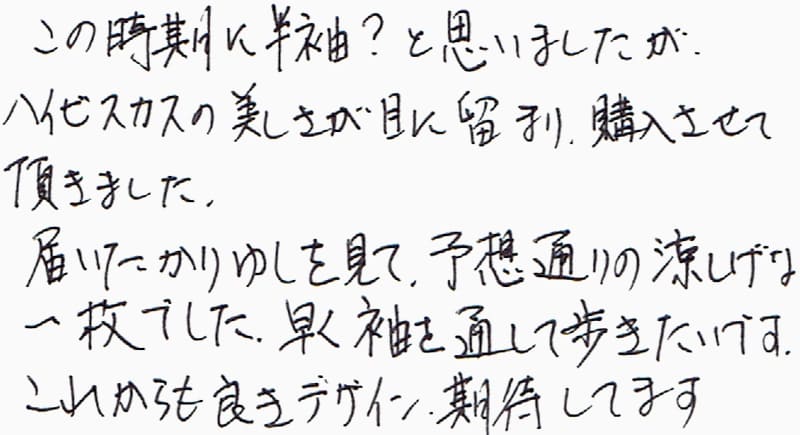 この時期に半袖？と思いましたが、
ハイビスカスの美しさが目に留まり、購入させて
頂きました。
届いたかりゆしを見て、予想通りの涼しげな
一枚でした。早く袖を通して歩きたいです。
これからも良きデザイン、期待してます